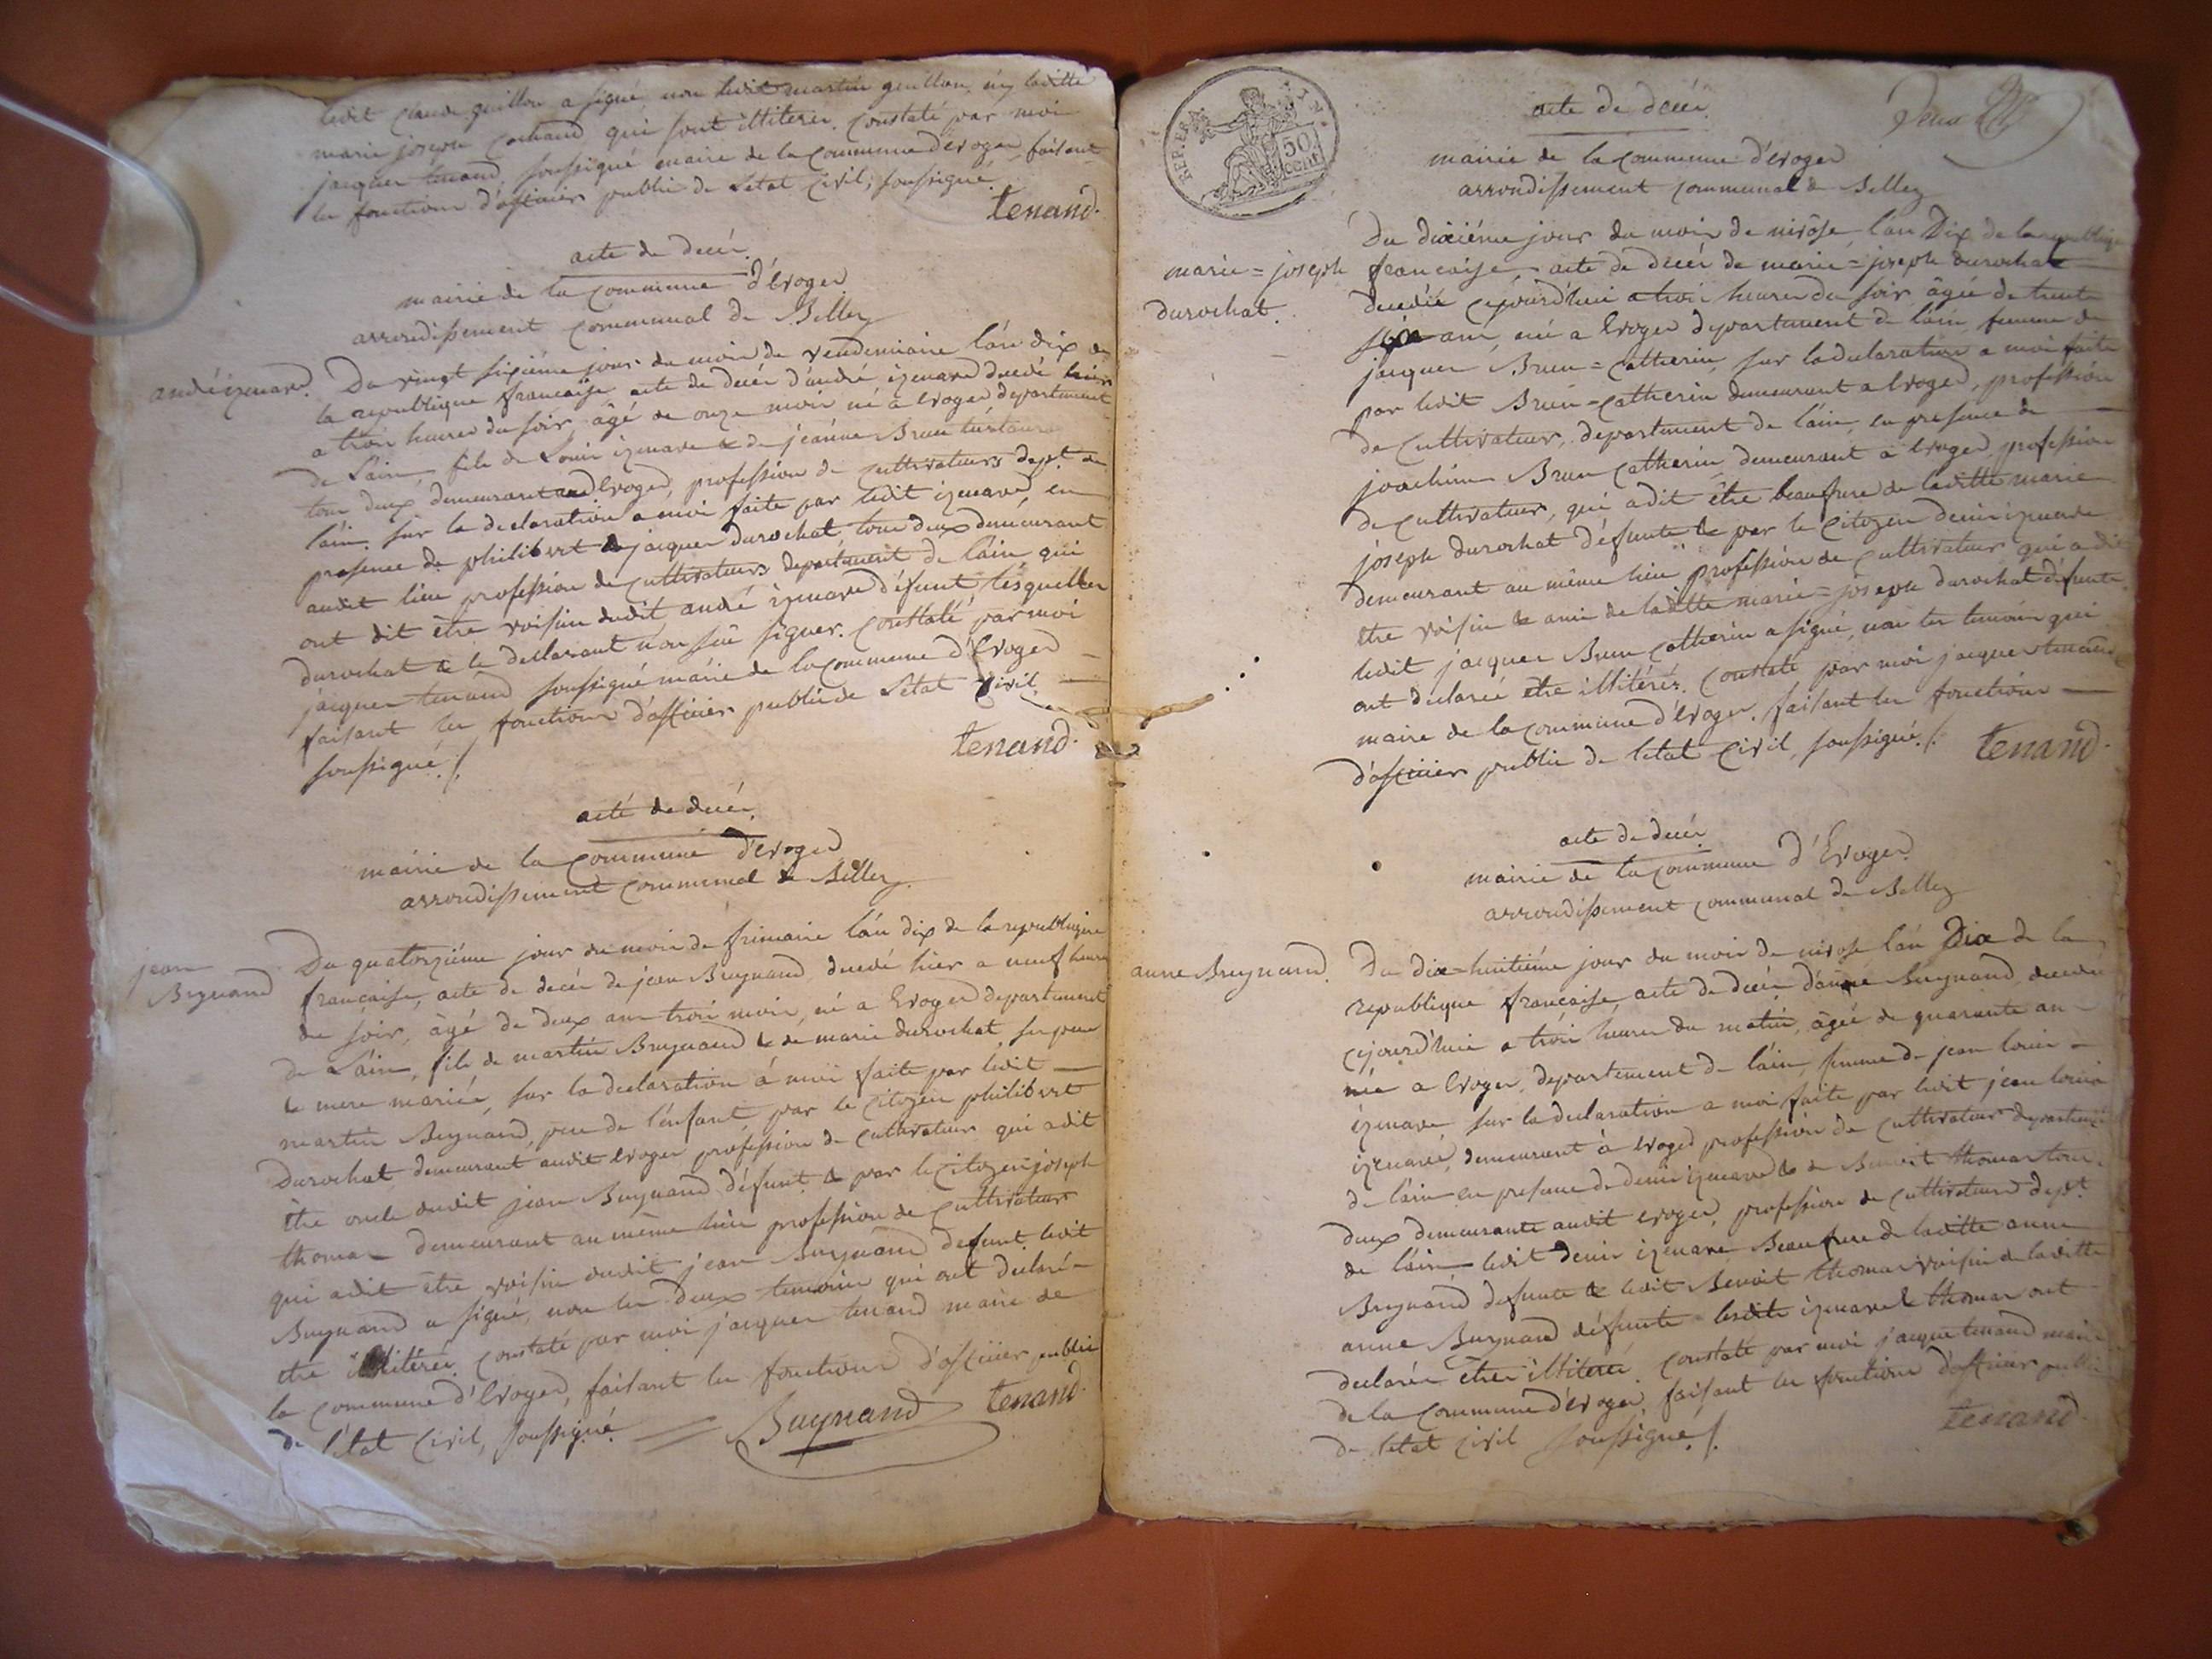 ledit claude guillon a signé, non ledit martin guillon, ny laditte
marie joseph qui sont illiterés. constaté par moi
jacques tenand, soussigné maire de la commune d'évoges, faisant
les fonctions d'officier public de l'etat civil, soussigné.
tenand.
acte de decés.
mairie de la commune d'évoges
arrondissement communal de Belley
andré izenare.
Du vingt sixiéme jour du moir de vendemiaire l'an dix de
la republique francaise, acte de decés d'andré izenare decedé hier
a trois heures du soir, âgé de onze mois né à evoges departement
de l'ain, fils de Louis izenare & de jeanne Brun
tous deux demeurant evoges, profession de cultivateurs dept. de
l'ain. sur la declaration a moi faite par ledit izenare, en
presence de philibert & jacques durochat, tous deux demeurant
audit lieu profession de cultivateurs departement de l'ain qui
ont dit être voisins dudit andré izenare défunt, lesquelles
durochat & le declarant non sçu signer. constaté par moi
jacques tenand soussigné maire de la commune d'Evoges
faisant les fonctions d'officier public de l'etat civil
soussigné ./.
tenand.
acté de decés.
mairie de la commune d'evoges
arrondissement communal de Belley
jean
Bugnand
Du quatorziéme jour du mois de frimaire l'an dix de la republique
francaise, acte de decés de jean Bugnand decedé hier a neuf heures
du soir, âgé de deux ans trois mois, né a Evoges departement
de l'ain, fils de martin Bugnand & de marie durochat, ses pere
& mere mariés, sur la declaration à moi faite par ledit
martin Bugnand, pere de l'enfant, par le citoyen philibert
Durochat demeurant audit evoges profession de cultivateur qui a dit
être oncle dudit jean Bugnand défunt & par le citoyen joseph
thomas demeurant au même lieu profession de cultivateur
qui a dit être voisin dudit jean Bugnand defunt. ledit
Bugnand a signé, non les deux temoins qui ont declaré
être illitérés. constaté par moi jacques tenand maire de
la commune d'Evoges, faisant les fonctions d'officier public
de l'état civil, soussigné.
Bugnand tenand.
REP. FRA.
50
CENT
Deux
acte de decés.
mairie de la commune d'evoges
arrondissement communal de Belley
marie=joseph
durochat.
Du dixiéme jour du moir de nivôse, l'an Dix de la republique
francaise, acte de decés de marie=joseph durochat
decedée cejourd'hui a trois heures du soir âgée de trente
ans, né a Evoges departement de l'ain, femme de
jacques Brun=catherin, sur la declaration a moi faite
par ledit Brun=catherin demeurant a Evoges, profession
de cultivateur, departement de l'ain, en presence de
joachim Brun catherin, demeurant à Evoges, profession
de cultivateur, qui a dit être beaufrere de laditte marie
joseph durochat défunte & par le citoyen denis izenare
demeurant au même lieu profession de cultivateur qui a dit
être voisin & ami de laditte marie=joseph durochat défunte
ledit jacques Brun catherin a signé, non les temoins qui
ont declaré être illitérés. constaté par moi jacques tenand
maire de la commune d'Evoges, faisant les fonctions
d'officier public de l'etat civil, soussigné ./. tenand.
acte de decés
mairie de la commune d'Evoges
arrondissement communal de Belley
anne Bugnand.
Du dix=huitiéme jour du moir de nivose l'an Dix de la
republique française, acte de decés d'anne Bugnand, decedée
cejourd'hui a trois heures du matin, âgée de quarante ans
née a Evoges, departement de l'ain, femme de jean louis
izenare sur la declaration a moi faite par ledit jean louis
izenare, demeurent à evoges profession de cultivateur departement
de l'ain en presence de denis izenare & de Benoit thomas tous
deux demeurants audit evoges, profession de cultivateurs dept.
de l'ain ledit denis izenare Beaufrere de laditte anne
Bugnand defunte & ledit Benoit thomas voisin de laditte
anne Bugnand défunte lesdits izenare & thomas ont
declarés être illiterés. constaté par moi jacques tenand maire
de la commune d'evoges, faisant les fonctions d'officier public
de l'etat civil soussigné ./.
tenand.